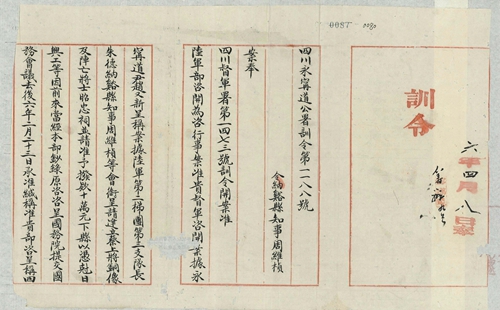 0087 0090
訓令
六年四月八日
四川永寧道公署訓令第一一八八號
令納谿縣知事周維楨
案奉
四川督軍署第一四七三號訓令開案准
陸軍部咨開為咨行事案准貴督軍咨開案據永
寧道尹趙又新呈稱案據陸軍第二梯團第三支隊長
朱德納谿縣知事周維楨等會銜呈請建立蔡上將銅像
及陣亡將士昭忠祠並請准予撥欵十萬元下縣以憑尅日
興工等因前來當經本部鈔錄原咨咨呈國務院提交國
務會議去後六年二月二十三日承准緘稱准貴部咨呈稱四